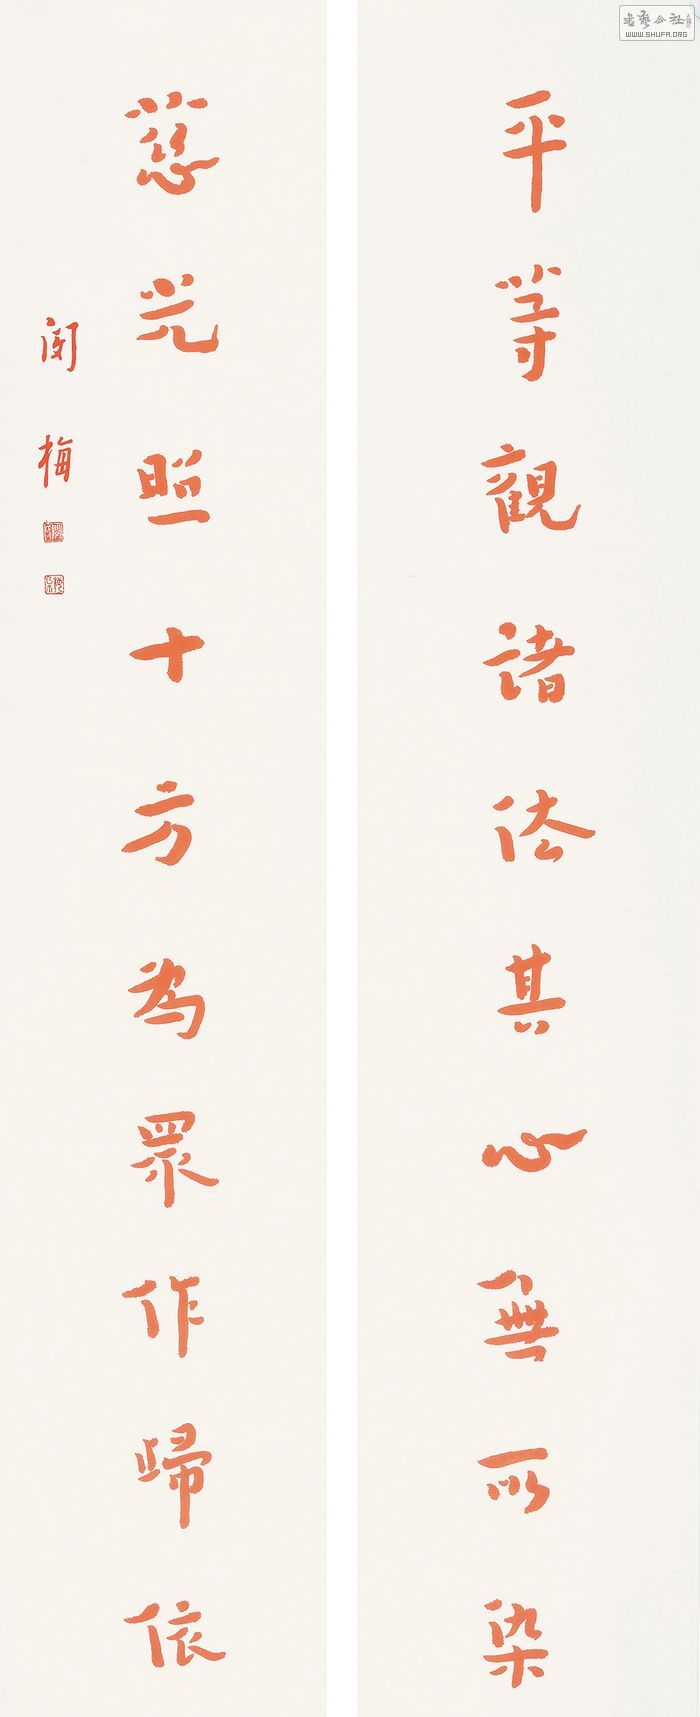 平等觀諸法其心無所染
慈光照十方為眾作歸依
閔梅
WWW.SHUFA.ORG